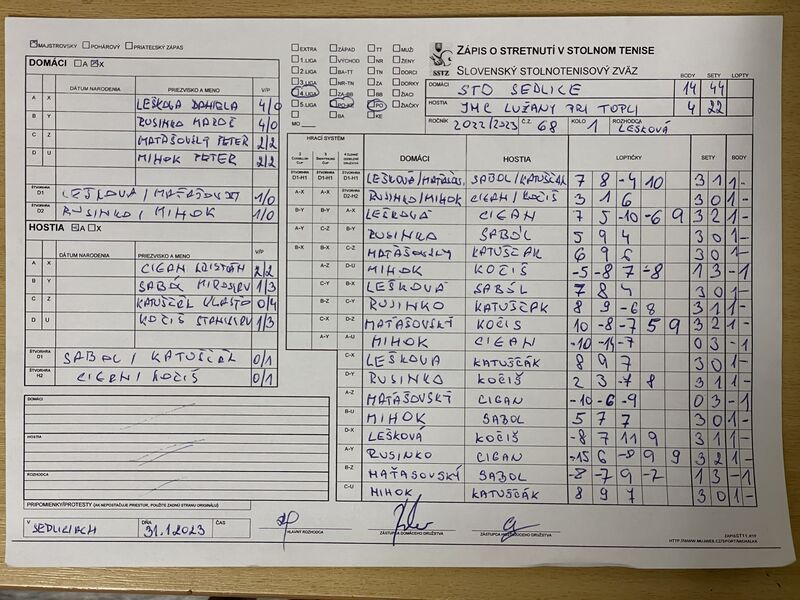 MAJSTROVSKÝ POHÁROVÝ PRIATEĽSKÝ ZÁPAS
DOMÁCI A X
DÁTUM NARODENIA PRIEZVISKO A MENO V/P
A X LEŠKOVÁ DANIELA 4/0
B Y RUSINKO MAROŠ 4/0
C Z MAŤAŠOVSKÝ PETER 2/2
D U MIHOK PETER 2/2
ŠTVORHRA D1 LEŠKOVÁ / MAŤAŠOVSKÝ 1/0
ŠTVORHRA D2 RUSINKO / MIHOK 1/0
HOSTIA A X
DÁTUM NARODENIA PRIEZVISKO A MENO V/P
A X CIGAN KRISTIÁN 2/2
B Y SABOL MIROSLAV 1/3
C Z KATUŠČÁK VLASTO 0/4
D U KOČIŠ STANISLAV 1/3
ŠTVORHRA D1 SABOL / KATUŠČÁK 0/1
ŠTVORHRA H2 CIGAN / KOČIŠ 0/1
DOMÁCI
HOSTIA
ROZHODCA
PRIPOMIENKY/PROTESTY (AK NEPOSTAČUJE PRIESTOR, POUŽITE ZADNÚ STRANU ORIGINÁLU)
V SEDLICIACH DŇA 31.1.2023 ČAS
EXTRA ZÁPAD TT MUŽI
1.LIGA VÝCHOD NR ŽENY
2.LIGA BA-TT TN DORCI
3.LIGA NR-TN ZA DORKY
4.LIGA ZA-BB BB ŽIACI
5.LIGA PO-KE PO ŽIAČKY
BA KE
MO
SSTZ
ZÁPIS O STRETNUTÍ V STOLNOM TENISE
SLOVENSKÝ STOLNOTENISOVÝ ZVÄZ
BODY SETY LOPTY
DOMÁCI STO SEDLICE 14 44
HOSTIA JMC LUŽANY PRI TOPLI 4 22
ROČNÍK 2022/2023 Č.Z. 68 KOLO 1 ROZHODCA LEŠKOVÁ
HRACÍ SYSTÉM DOMÁCI HOSTIA LOPTIČKY SETY BODY
ŠTVORHRA D1-H1 ŠTVORHRA D1-H1 ŠTVORHRA D1-H1 LEŠKOVÁ/MAŤAŠOV. SABOL/KATUŠČÁK 7 8 -4 10 3 1 1 -
A-X A-X ŠTVORHRA D2-H2 RUSINKO/MIHOK CIGAN/KOČIŠ 3 1 6 3 0 1 -
B-Y B-Y A-X LEŠKOVÁ CIGAN 7 5 -10 -6 9 3 2 1 -
A-Y C-Z B-Y RUSINKO SABOL 5 9 4 3 0 1 -
B-X B-X C-Z MAŤAŠOVSKÝ KATUŠČÁK 6 9 6 3 0 1 -
A-Z D-U MIHOK KOČIŠ -5 -8 7 -8 1 3 - 1
C-Y LEŠKOVÁ SABOL 7 8 4 3 0 1 -
B-Z RUSINKO KATUŠČÁK 8 9 -6 8 3 1 1 -
C-X MAŤAŠOVSKÝ KOČIŠ 10 -8 -7 5 9 3 2 1 -
A-Y MIHOK CIGAN -10 -14 -7 0 3 - 1
C-X LEŠKOVÁ KATUŠČÁK 8 9 7 3 0 1 -
D-Y RUSINKO KOČIŠ 2 3 -7 8 3 1 1 -
A-Z MAŤAŠOVSKÝ CIGAN -10 -6 -9 0 3 - 1
B-U MIHOK SABOL 5 7 7 3 0 1 -
D-X LEŠKOVÁ KOČIŠ -8 7 11 9 3 1 1 -
A-Y RUSINKO CIGAN -15 6 -8 9 9 3 2 1 -
B-Z MAŤASOVSKÝ SABOL -8 -7 9 -7 1 3 - 1
C-U MIHOK KATUŠČÁK 8 9 7 3 0 1 -
HLAVNÝ ROZHODCA ZÁSTUPCA DOMÁCEHO DRUŽSTVA ZÁSTUPCA HOSŤUJÚCEHO DRUŽSTVA